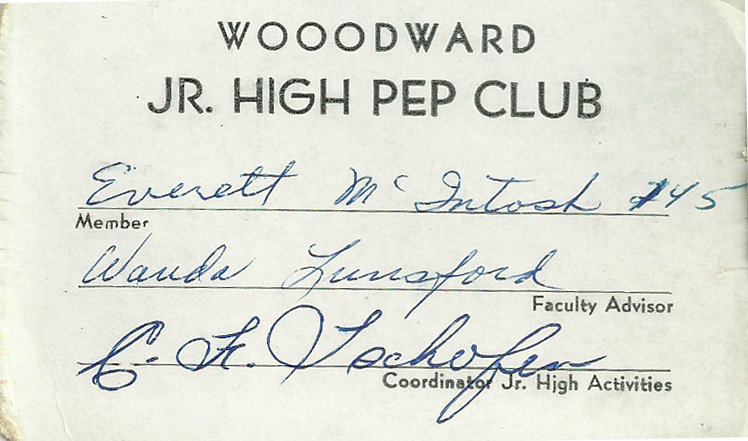 WOOODWARD
JR. HIGH PEP CLUB
Everett McIntosh #45
Member
Wanda Lunsford
Faculty Advisor
C. Tschofen
Coordinator Jr. High Activities